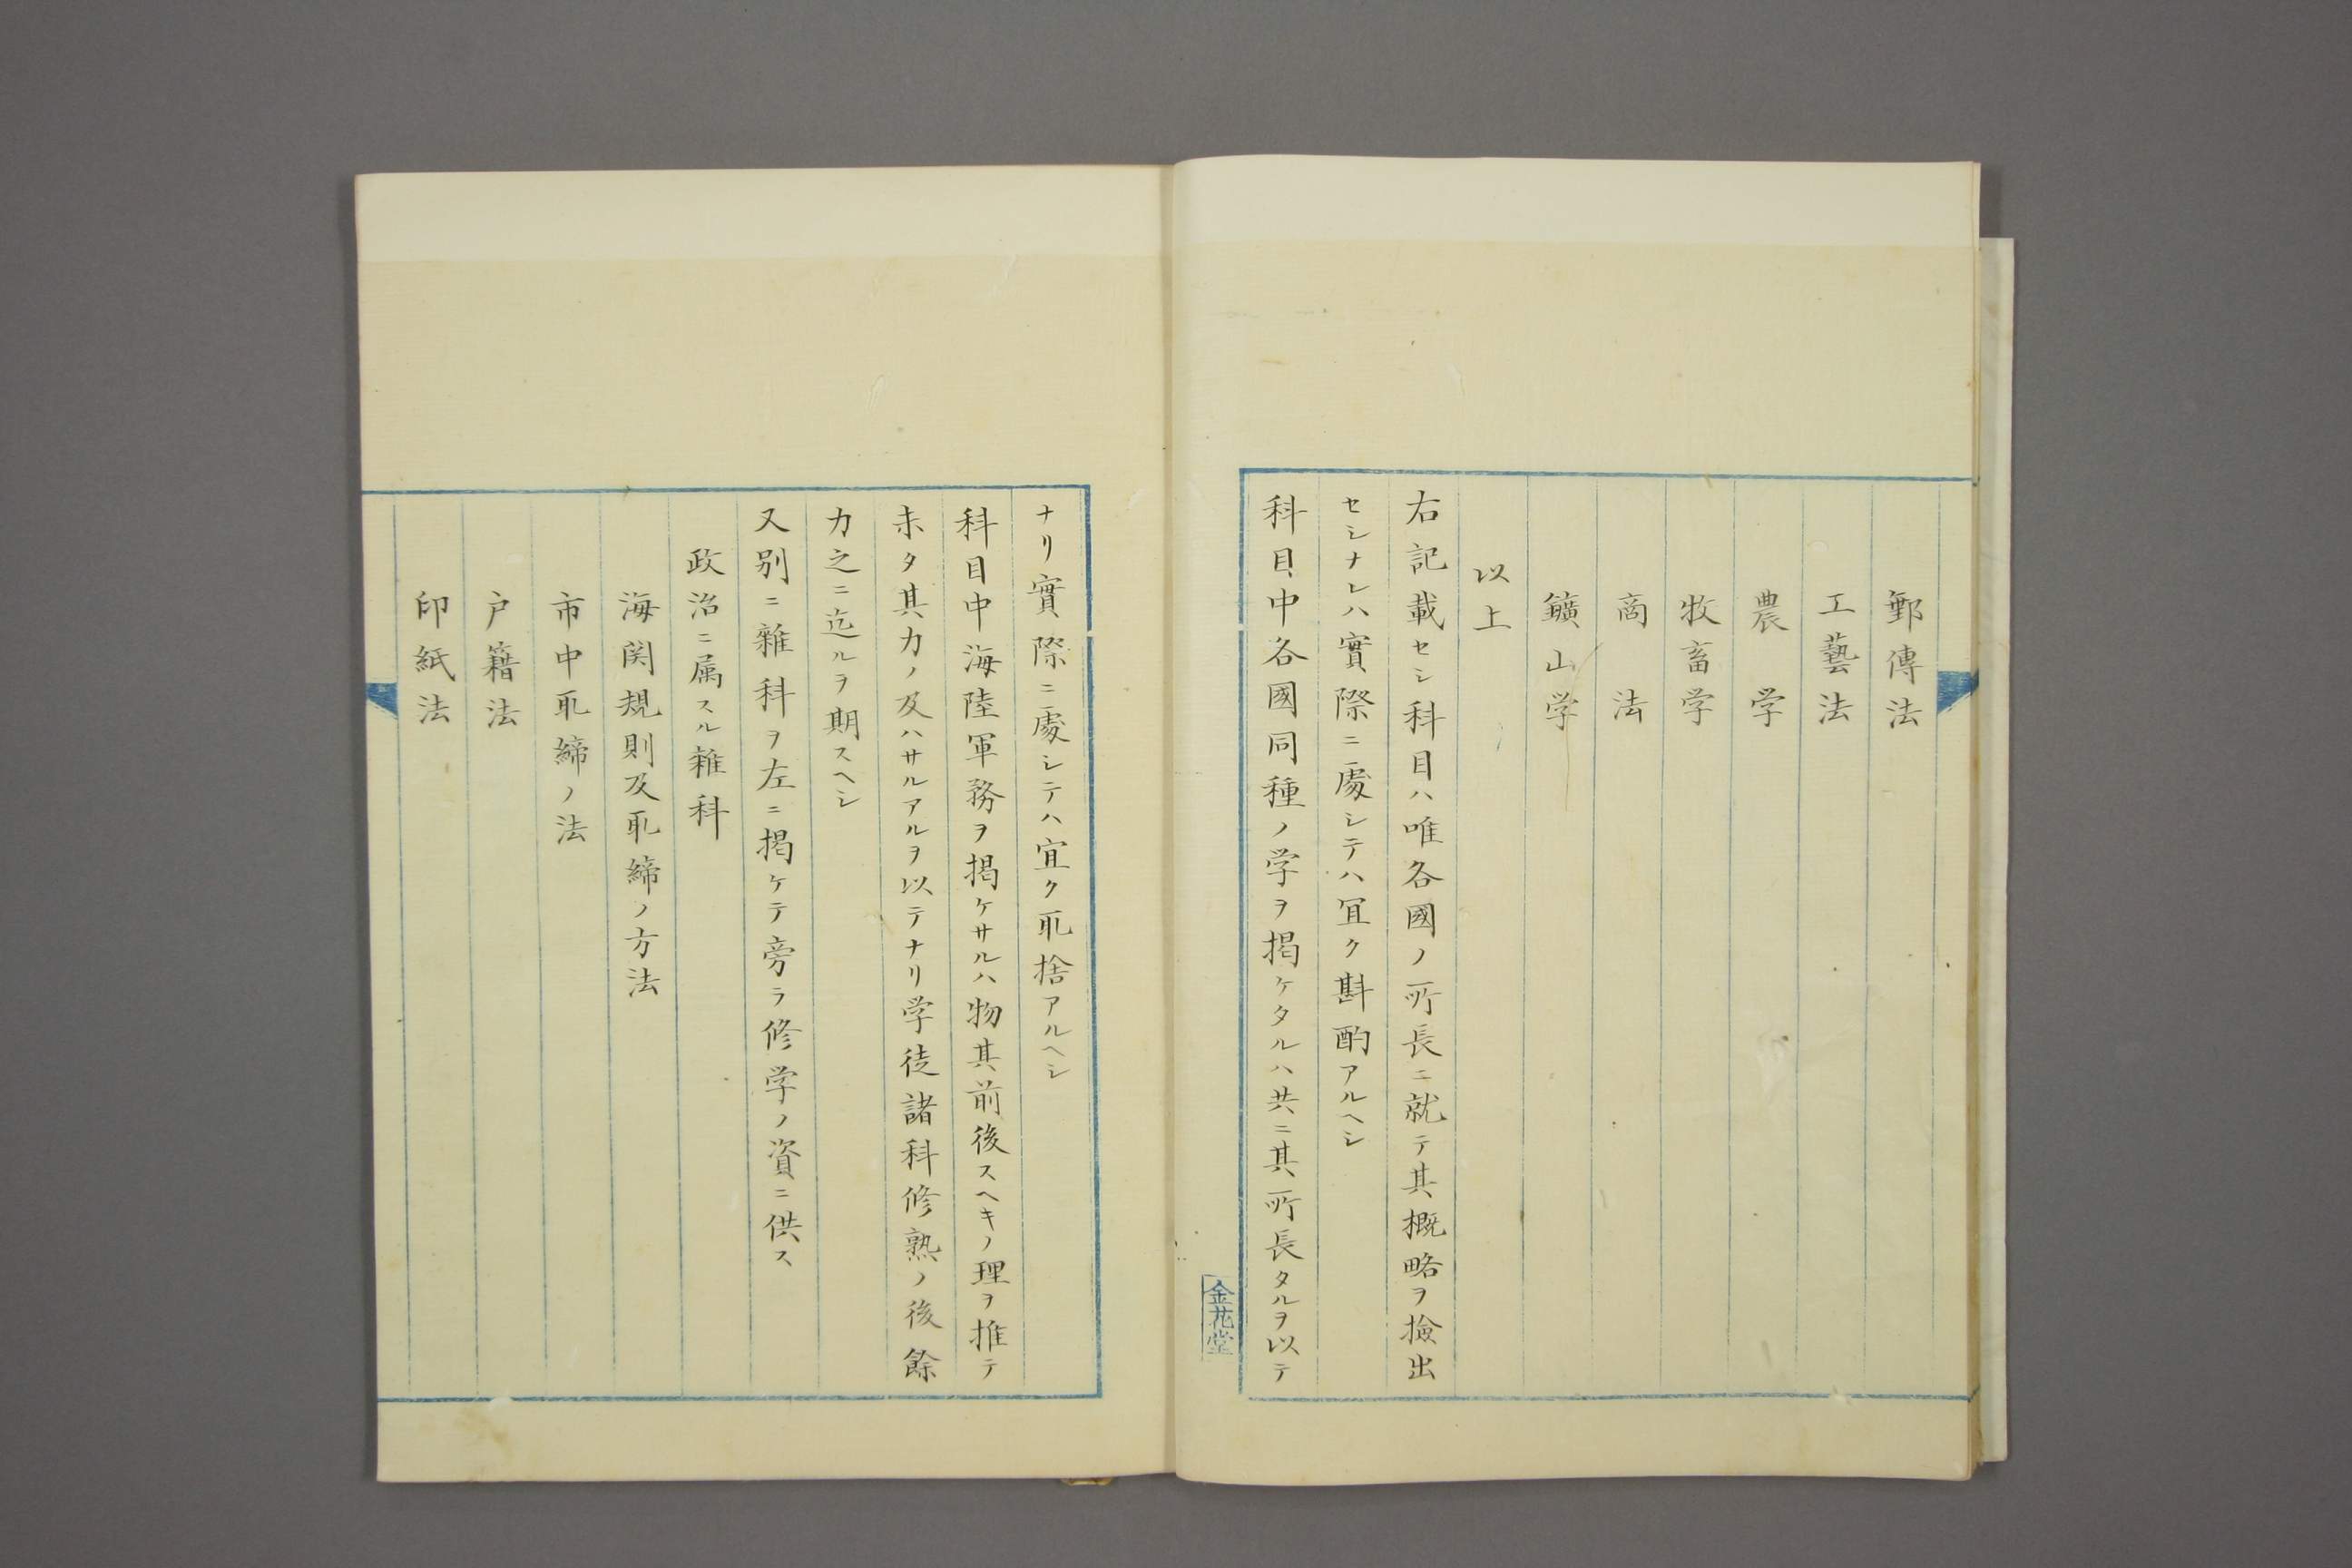 郵傳法
工藝法
農学
牧畜学
商法
鑛山学
以上
右記載セシ科目ハ唯各國ノ所長ニ就テ其概略ヲ撿出
セシナレハ實際ニ處シテハ宜ク斟酌アルヘシ
科目中各國同種ノ学ヲ掲ケタルハ共ニ其所長タルヲ以テ
金花堂
ナリ實際ニ處シテハ宜ク取捨アルヘシ
科目中海陸軍務ヲ掲ケサルハ物其前後スヘキノ理ヲ推テ
未タ其力ノ及ハサルアルヲ以テナリ学徒諸科修熟ノ後餘
力之ニ迄ルヲ期スヘシ
又別ニ雜科ヲ左ニ掲ケテ旁ラ修学ノ資ニ供ス
政治ニ属スル雜科
海関規則及取締ノ方法
市中取締ノ法
戸籍法
印紙法